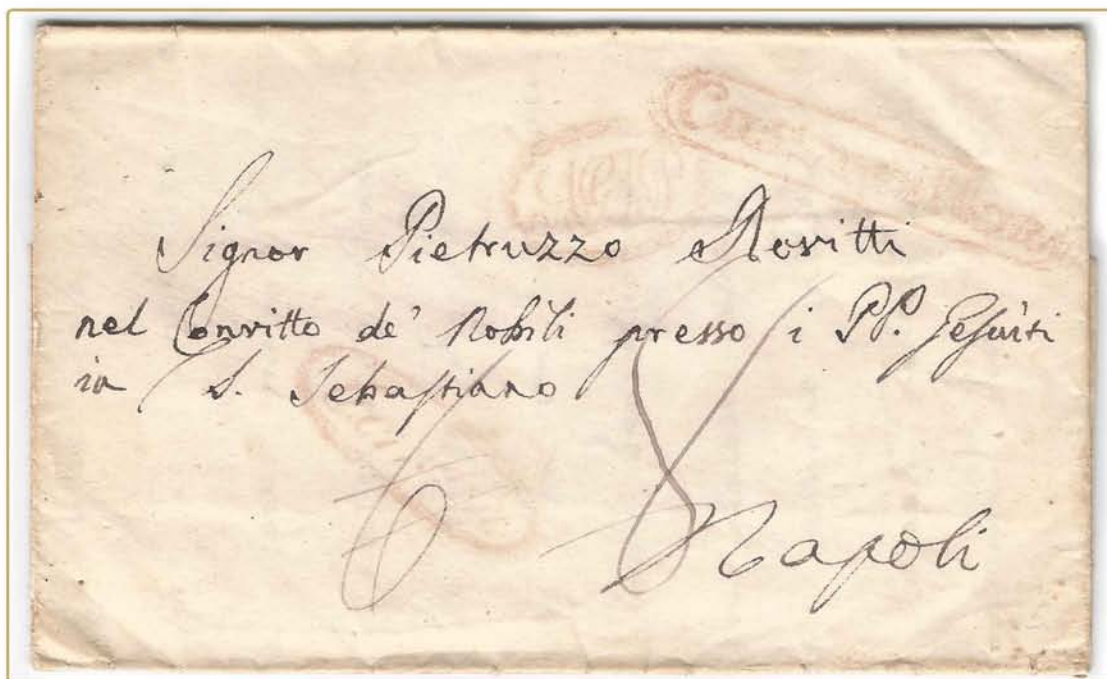 Signor Pietruzzo Rovitti
nel Convitto de' Nobili presso i PP. Gesuiti
in S. Sebastiano
Napoli